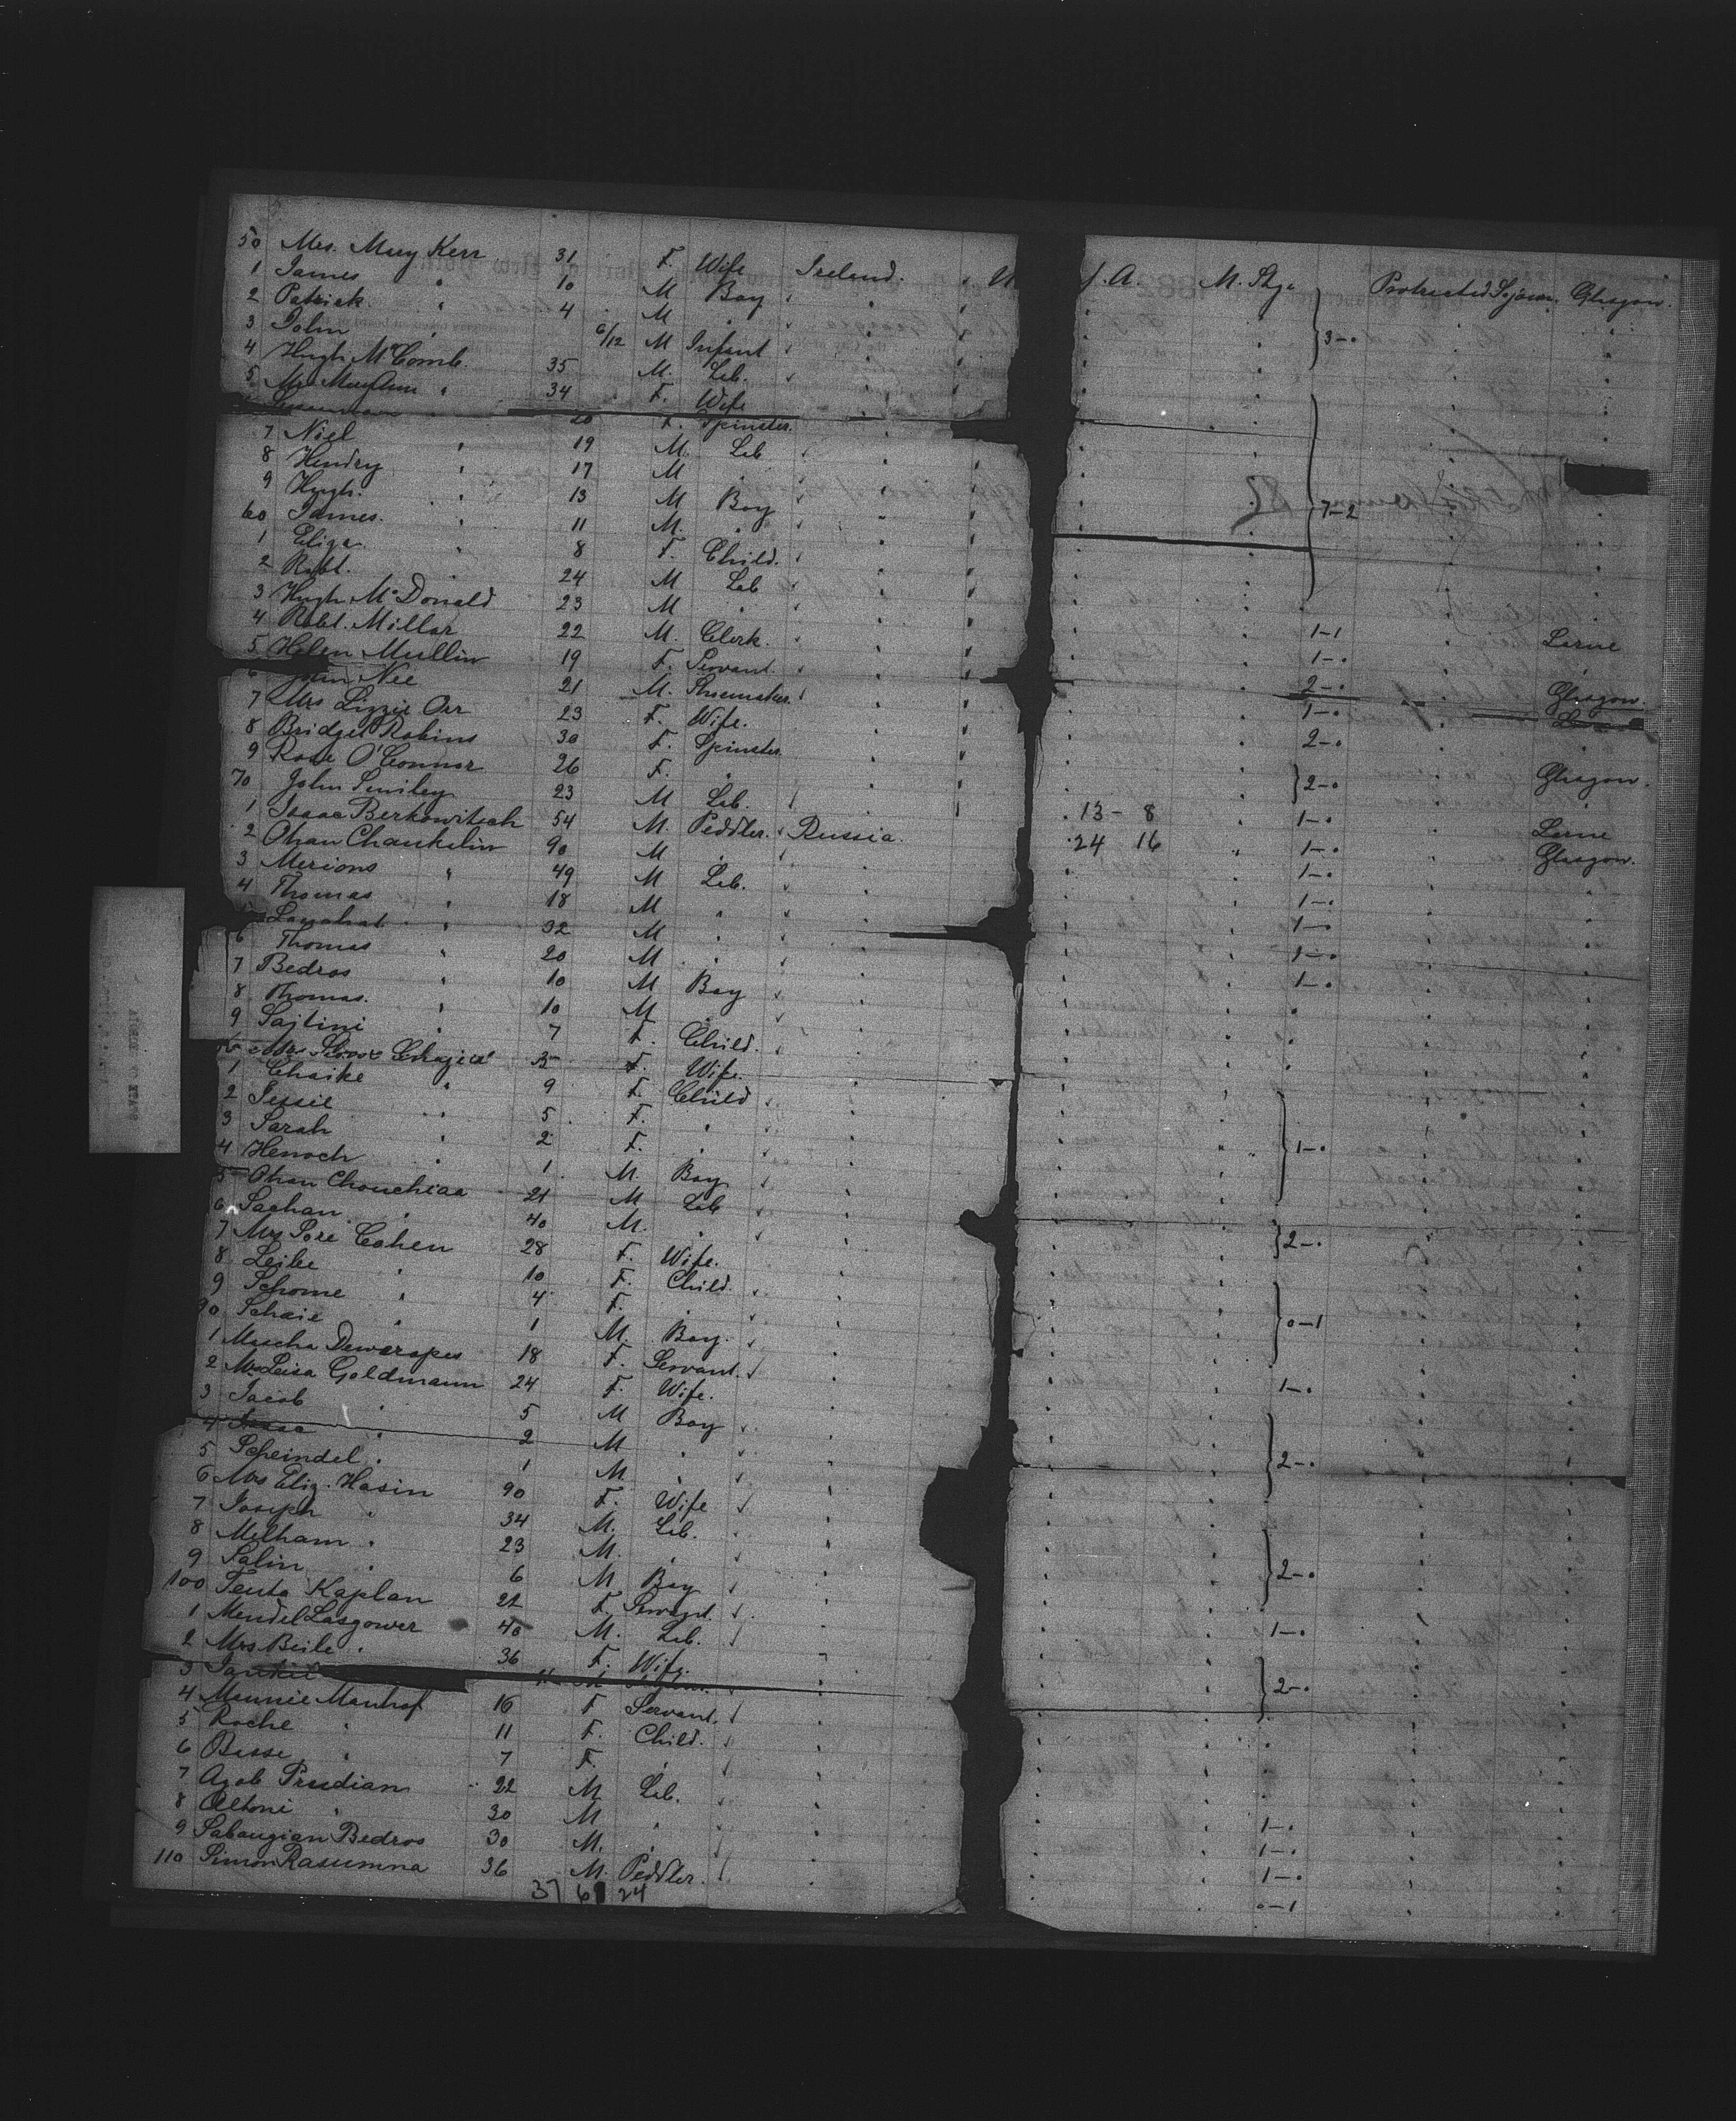 50 Mrs. Mary Kerr 31 F. Wife Ireland. U. S. A. M. Stge Protracted Sojourn. Glasgow.
1 James " 10 M Boy
2 Patrick " 4 M "
3 John " 6/12 M Infant 3-0
4 Hugh McComb. 35 M. Lab.
5 Mrs Mary Ann " 34 F. Wife
20 F. Spinster.
7 Niel " 19 M. Lab
8 Hendry " 17 M "
9 Hugh. " 13 M Boy 7-2
60 James. " 11 M. "
1 Eliza " 8 F. Child.
2 Robt. " 24 M Lab
3 Hugh McDonald 23 M " 1-1 Larne
4 Robt. Millar 22 M. Clerk. 1-0 "
5 Helen Mullin 19 F. Servant 2-0 Glasgow.
6 John Nee 21 M. Shoemaker. 1-0
7 Mrs Lizzie Orr 23 F. Wife. 2-0
8 Bridget Robins 30 F. Spinster 2-0 Glasgow.
9 Rose O'Connor 26 F. "
70 John Smiley 23 M Lab. 1-0 Larne
1 Isaac Berkowitsch 54 M. Peddler. Russia. 13-8 1-0 Glasgow.
2 Ohan Chankelin 90 M " 24 16 1-0
3 Merions " 49 M Lab. 1-0
4 Thomas " 18 M " 1-0
32 M " 1-0
6 Thomas " 20 M " 1-0
7 Bedros " 10 M Boy
8 Thomas. " 10 M "
9 Sajtini " 7 F. Child.
F. Wife.
1 Chaike " 9 F. Child
2 Jessie " 5 F. " 1-0
3 Sarah " 2 F. "
4 Henoch " 1 M. Boy
5 Ohan Chouchiaa 21 M Lab 2-0
6 Sachan " 40 M. "
7 Mrs Pore Cohen 28 F. Wife.
8 Leibe " 10 F. Child. 0-1
9 Schome " 4 F. "
90 Schaie " 1 M. Boy.
1 Mascha Dewarapes 18 F. Servant. 1-0
2 Mrs Leisa Goldmann 24 F. Wife.
3 Jacob " 5 M Boy 2-0
4 Isaac " 2 M "
5 Scheindel " 1 M "
6 Mrs Eliz. Hasin 90 F. Wife
7 Joseph " 34 M. Lab. 2-0
8 Melham " 23 M. "
9 Salin " 6 M Boy
100 Teuta Kaplan 22 F. Servant. 1-0
1 Mendel Lasgower 40 M. Lab.
2 Mrs Beile " 36 F. Wife. 2-0
3 Jankel
4 Mannie Manhof 16 F Servant.
5 Roche " 11 F. Child.
6 Basse " 7 F. "
7 Agob Prudian 22 M Lab. 1-0
8 Altoni " 30 M " 1-0
9 Sabaugian Bedros 30 M. " 1-0
110 Simon Rasumna 36 M. Peddler. 0-1
37 6 24